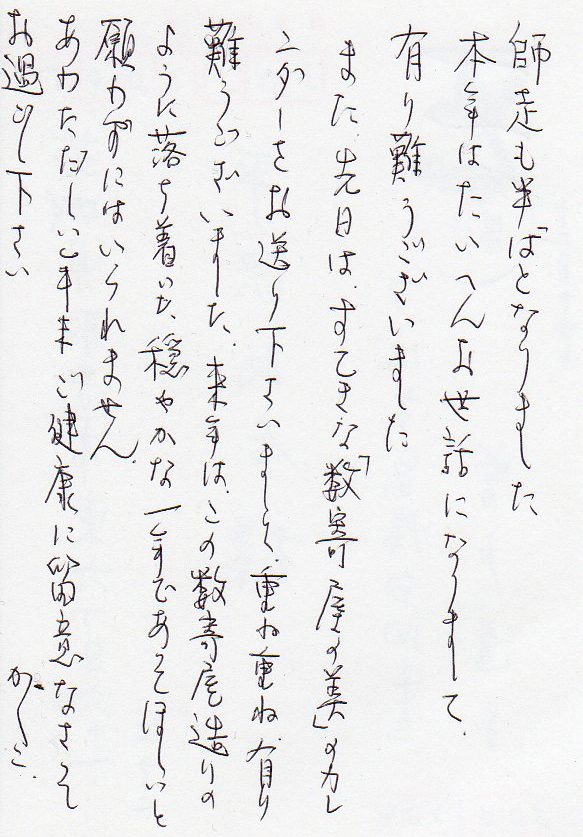 師走も半ばとなりました
本年はたいへんお世話になりまして、
有り難うございました
また、先日は、すてきな「数寄屋の美」のカレ
ンダーをお送り下さいまして、重ね重ね、有り
難うございました。来年は、この数寄屋造りの
ように落ち着いた、穏やかな一年であってほしいと
願わずにはいられません。
あわただしい年末、ご健康に留意なさって
お過ごし下さい
かしこ